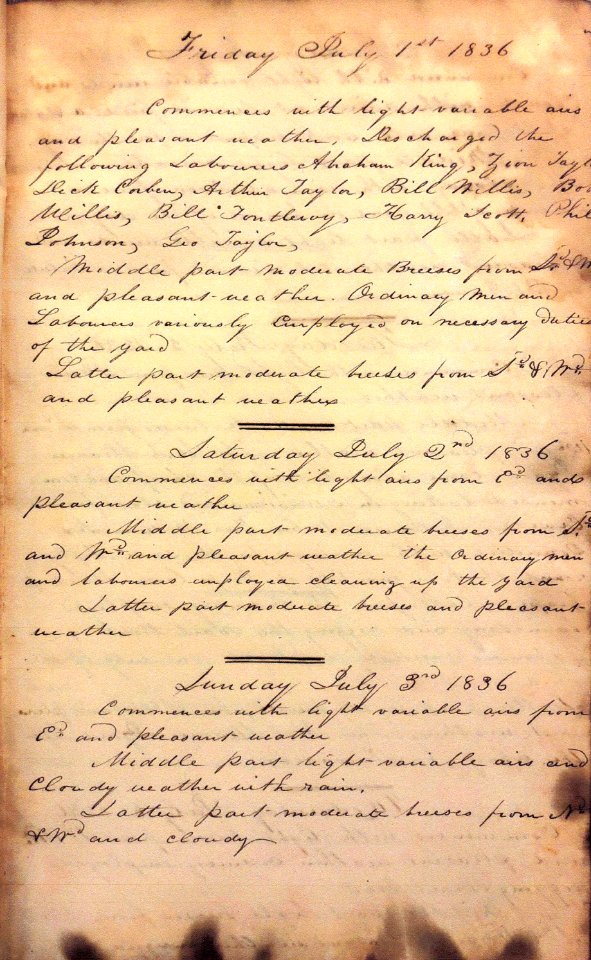 Friday July 1st 1836
Commences with light variable airs
and pleasant weather, Discharged the
following Labourers Abraham King,
Dick Corben, Arthur Taylor, Bill Willis,
Willis, Bill Fontleroy, Harry Scott, Phil
Johnson, Geo Taylor,
Middle part moderate Breeses from
and pleasant weather. Ordinary men and
Labourers variously Employed on necessary duties
of the yard
Latter part moderate breeses from Sd & Wd
and pleasant weather
Saturday July 2nd 1836
Commences with light airs from Ed and
pleasant weather
Middle part moderate breeses from Sd
and Wd and pleasant weather the Ordinary men
and labourers employed cleaning up the yard
Latter part moderate breeses and pleasant
weather
Sunday July 3rd 1836
Commences with light variable airs from
Ed and pleasant weather
Middle part light variable airs and
Cloudy weather with rain.
Latter part moderate breeses from Nd
& Wd and cloudy